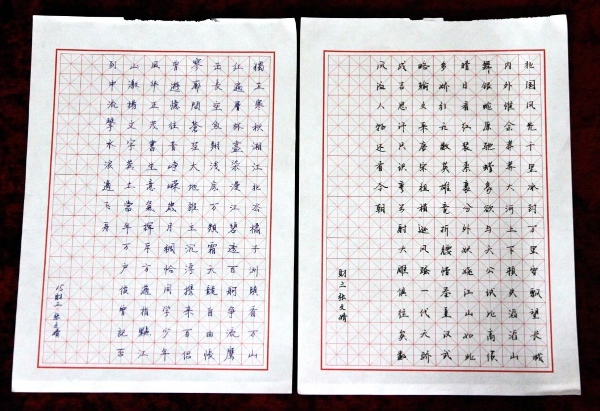 獨立寒秋湘江北去橘子洲頭看万山
红遍層林盡染漫江碧透百舸争流鷹
击長空魚翔浅底万類霜天競自由悵
寥廓問蒼茫大地誰主沉浮携來百侣
曾遊憶往昔崢嶸歲月稠恰同学少年
风华正茂書生意氣揮斥方遒指點江
山激揚文字粪土當年万户侯曾記否
到中流擊水浪遏飞舟
15财三 张文婧
北国风光千里冰封万里雪飘望長城
内外惟余莽莽大河上下頓失滔滔山
舞银蛇原驰蜡象欲与天公试比高须
晴日看红装素裹分外妖娆江山如此
多娇引无数英雄竞折腰惜秦皇汉武
略输文采唐宋祖稍逊风骚一代天骄
成吉思汗只识弯弓射大雕俱往矣数
风流人物还看今朝
财三 张文婧